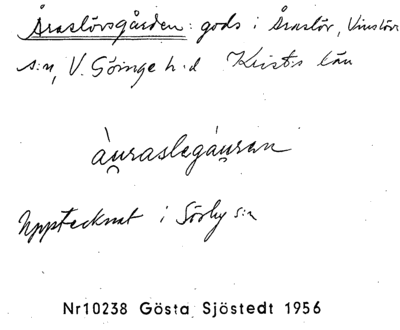 Åraslövsgården: gods i Åraslöv, Vinslövs
s:n, V. Göinge h:d Krist:s län
àu̯raslegàu̯ren
Upptecknat i Sörby s:n
Nr10238 Gösta Sjöstedt 1956